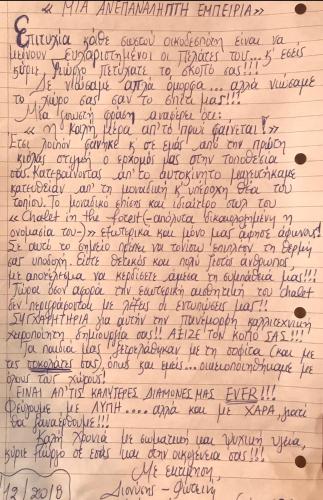 « ΜΙΑ ΑΝΕΠΑΝΑΛΗΠΤΗ ΕΜΠΕΙΡΙΑ»
Επιτυχία κάθε σωστού οικοδεσπότη είναι να
μείνουν ευχαριστημένοι οι πελάτες του... κ' εσείς
κύριε Γιώργο πετύχατε το σκοπό σας!!!
Δε νιώσαμε απλά όμορφα... αλλά νιώσαμε
το χώρο σας σαν το σπίτι μας!!!
Μια γνωστή φράση αναφέρει ότι:
« η καλή μέρα απ' το πρωί φαίνεται!»
Έτσι λοιπόν φάνηκε κ' σε εμάς από την πρώτη
κιόλας στιγμή ο ερχομός μας στην τοποθεσία
σας. Κατεβαίνοντας απ' το αυτοκίνητο μαγευτήκαμε
κατευθείαν απ' τη μοναδική κ' υπέροχη θέα του
τοπίου. Το μοναδικό επίσης και ιδιαίτερο στυλ του
« Chalet in the forest(-απόλυτα δικαιολογημένη η
ονομασία του-)» εξωτερικά και μόνο μας άφησε άφωνους!
Σε αυτό το σημείο πρέπει να τονίσω επιπλέον τη θερμή
σας υποδοχή. Είστε θετικός και πολύ ζεστός άνθρωπος,
με αποτέλεσμα να κερδίσετε άμεσα τη συμπάθειά μας!!!
Τώρα όσον αφορά την εσωτερική αισθητική του chalet
δεν περιγράφονται με λέξεις οι εντυπώσεις μας!!
ΣΥΓΧΑΡΗΤΗΡΙΑ για αυτήν την πανέμορφη καλλιτεχνική
χειροποίητη δημιουργία σας!! ΑΞΙΖΕ ΤΟΝ ΚΟΠΟ ΣΑΣ!!!
Τα παιδιά μας ξετρελάθηκαν με τη σοφίτα (και με
τις σοκολάτες) όπως και εμείς... οικειοποιηθήκαμε με
όλους τους χώρους!
ΕΙΝΑΙ ΑΠ' ΤΙΣ ΚΑΛΥΤΕΡΕΣ ΔΙΑΜΟΝΕΣ ΜΑΣ EVER!!!
Φεύγουμε με ΛΥΠΗ.... αλλά και με ΧΑΡΑ, γιατί
θα ξαναέρθουμε!!!
Καλή Χρονιά με σωματική και ψυχική υγεία,
κύριε Γιώργο σε εσάς και στην οικογένειά σας!!!
Με εκτίμηση,
Διονύσης - Φωτεινή
/12/2018